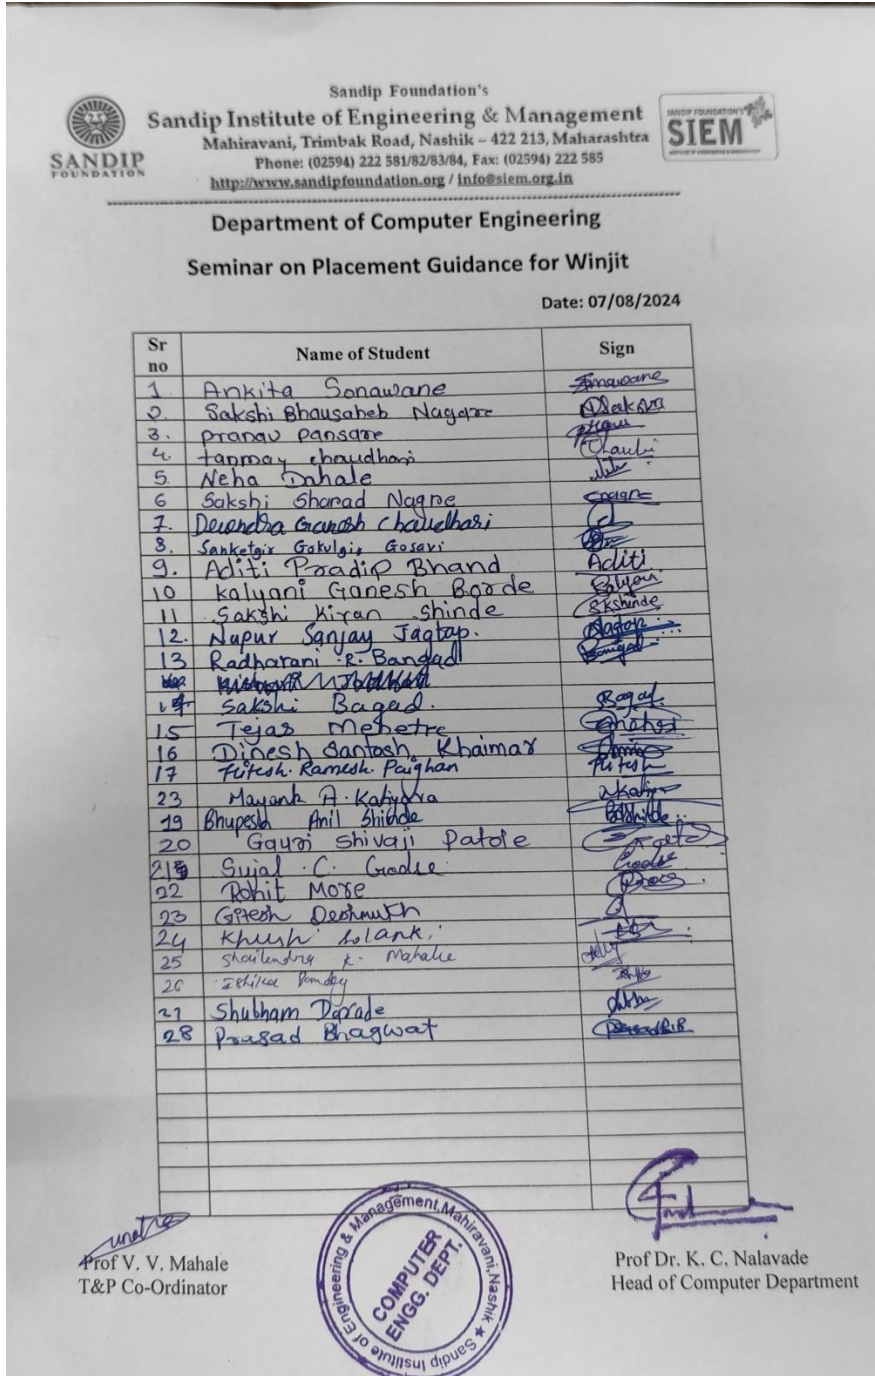 Sandip Foundation's
Sandip Institute of Engineering & Management
Mahiravani, Trimbak Road, Nashik – 422 213, Maharashtra
Phone: (02594) 222 581/82/83/84, Fax: (02594) 222 585
http://www.sandipfoundation.org / info@siem.org.in
SANDIP
FOUNDATION
SANDIP FOUNDATION'S
SIEM
Department of Computer Engineering
Seminar on Placement Guidance for Winjit
Date: 07/08/2024
Sr no Name of Student Sign
1 Ankita Sonawane
2. Sakshi Bhausaheb Nagare
3. pranav pansare
4. tanmay chaudhari
5. Neha Dahale
6 Sakshi Sharad Nagre
7. Devendra Ganesh Chaudhari
8. Sanketgir Gokulgir Gosavi
9. Aditi Pradip Bhand Aditi
10 Kalyani Ganesh Borde
11 Sakshi Kiran Shinde SKshinde
12. Nupur Sanjay Jagtap.
13 Radharani R. Bangad Bangad
14 Sakshi Bagad. Bagad
15 Tejas Mehetre
16 Dinesh Santosh Khairnar
17 Ritesh. Ramesh. Paighan Ritesh
23 Mayank A. Katiyara
19 Bhupesh Anil Shinde
20 Gauri Shivaji Patole
21 Sujal C. Godse Godse
22 Rohit More
23 Gitesh Deshmukh
24 Khush Solanki
25 Shailendra K. Mahale
26 Ishika Pandey
27 Shubham Darade
28 Prasad Bhagwat
Prof V. V. Mahale
T&P Co-Ordinator
Sandip Institute of Engineering & Management, Mahiravani, Nashik ★
COMPUTER
ENGG. DEPT.
Prof Dr. K. C. Nalavade
Head of Computer Department